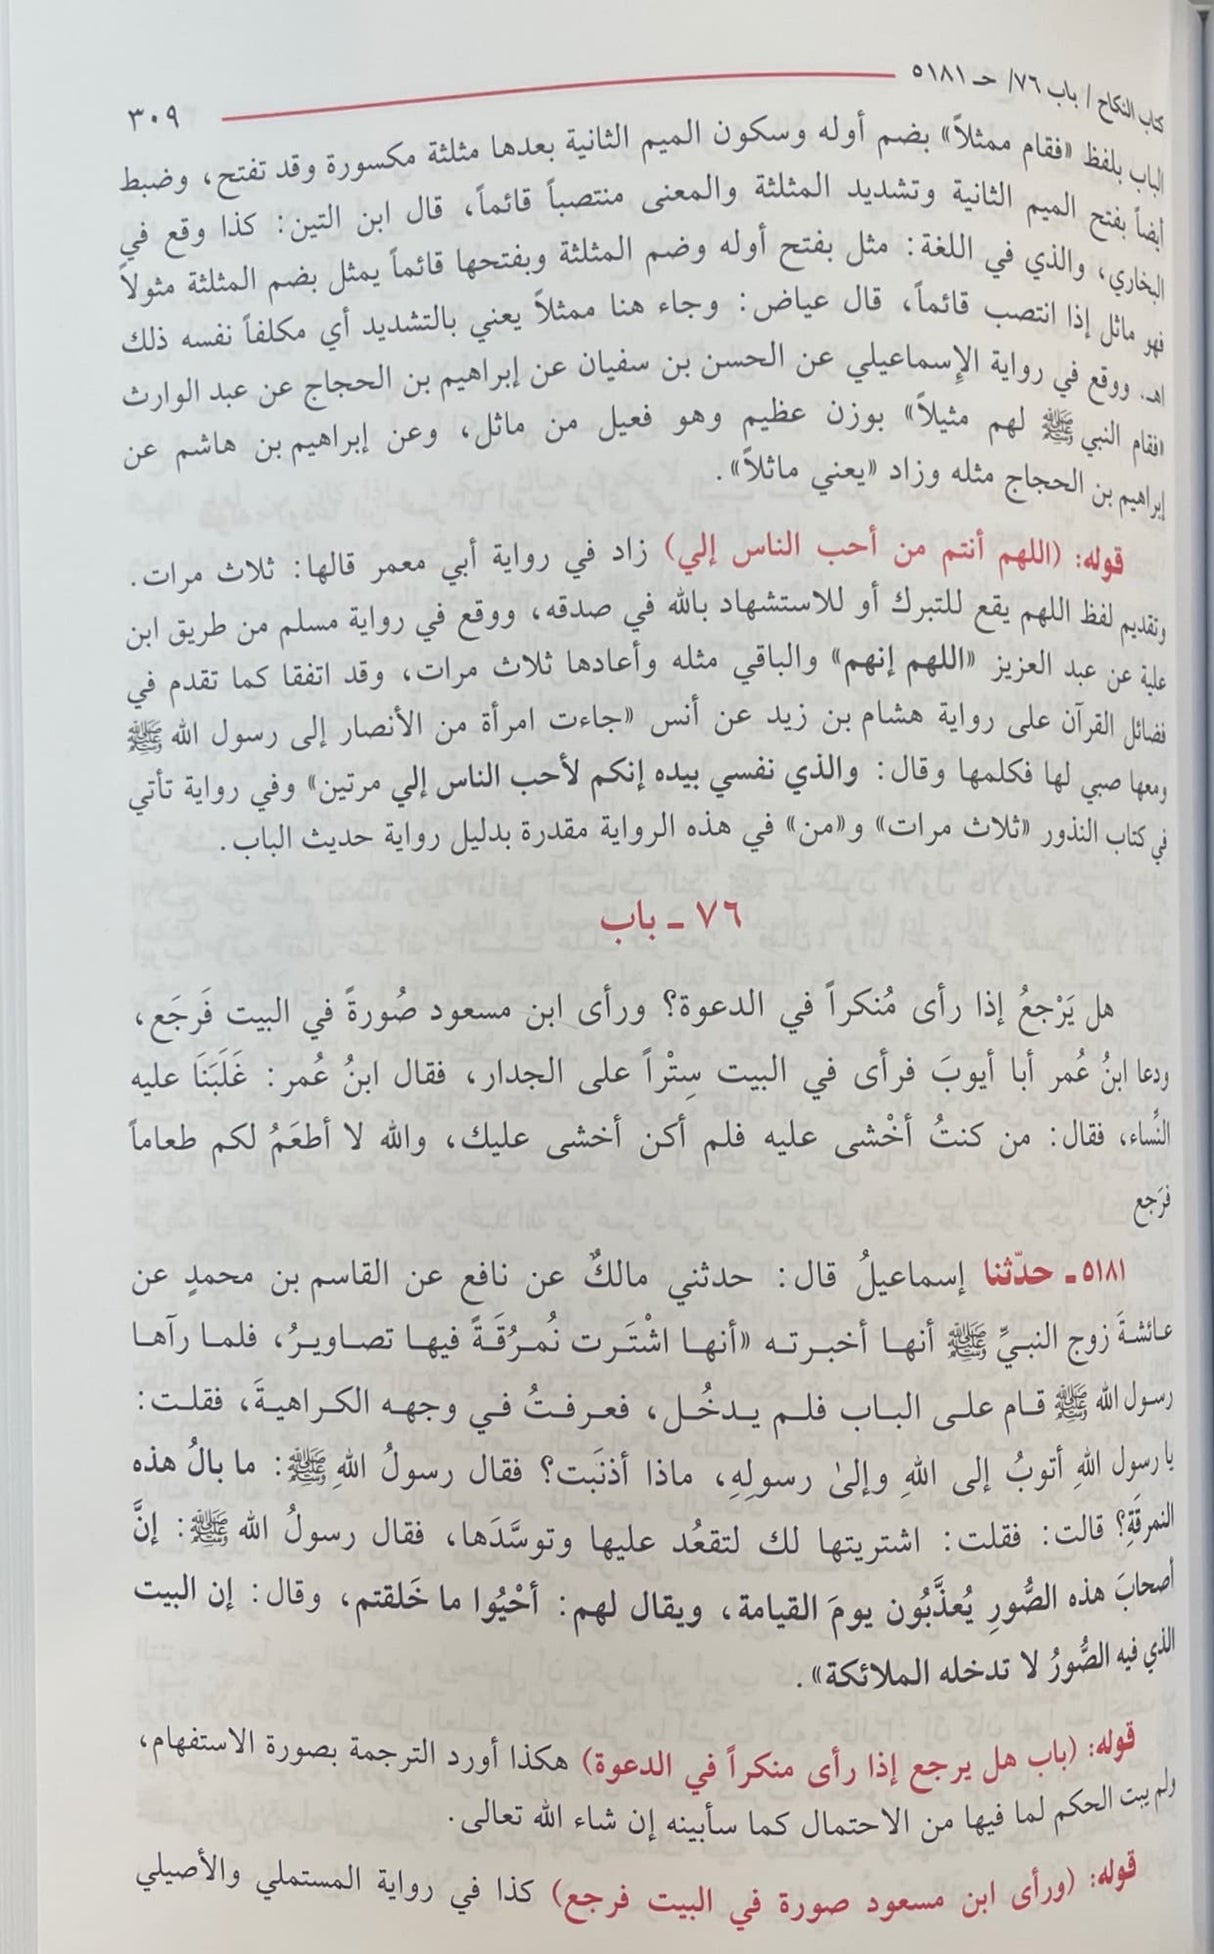 كتاب النكاح / باب ٧٦/ حـ ٥١٨١
٣٠٩
الباب بلفظ «فقام ممثلاً» بضم أوله وسكون الميم الثانية بعدها مثلثة مكسورة وقد تفتح، وضبط
أيضاً بفتح الميم الثانية وتشديد المثلثة والمعنى منتصباً قائماً، قال ابن التين: كذا وقع في
البخاري، والذي في اللغة: مثل بفتح أوله وضم المثلثة وبفتحها قائماً يمثل بضم المثلثة مثولاً
فهو ماثل إذا انتصب قائماً، قال عياض: وجاء هنا ممثلاً يعني بالتشديد أي مكلفاً نفسه ذلك
اهـ. ووقع في رواية الإسماعيلي عن الحسن بن سفيان عن إبراهيم بن الحجاج عن عبد الوارث
«فقام النبي ﷺ لهم مثيلاً» بوزن عظيم وهو فعيل من ماثل، وعن إبراهيم بن هاشم عن
إبراهيم بن الحجاج مثله وزاد «يعني ماثلاً».
قوله: (اللهم أنتم من أحب الناس إلي) زاد في رواية أبي معمر قالها: ثلاث مرات.
وتقديم لفظ اللهم يقع للتبرك أو للاستشهاد بالله في صدقه، ووقع في رواية مسلم من طريق ابن
علية عن عبد العزيز «اللهم إنهم» والباقي مثله وأعادها ثلاث مرات، وقد اتفقا كما تقدم في
فضائل القرآن على رواية هشام بن زيد عن أنس «جاءت امرأة من الأنصار إلى رسول الله ﷺ
ومعها صبي لها فكلمها وقال: والذي نفسي بيده إنكم لأحب الناس إلي مرتين» وفي رواية تأتي
في كتاب النذور «ثلاث مرات» و«من» في هذه الرواية مقدرة بدليل رواية حديث الباب.
٧٦ ـ باب
هل يَرْجعُ إذا رأى مُنكراً في الدعوة؟ ورأى ابن مسعود صُورةً في البيت فَرجَع،
ودعا ابنُ عُمر أبا أيوبَ فرأى في البيت سِتْراً على الجدار، فقال ابنُ عُمر: غَلَبَنَا عليه
النِّساء، فقال: من كنتُ أخْشى عليه فلم أكن أخشى عليك، والله لا أطعَمُ لكم طعاماً
فرَجع
٥١٨١ ـ حدّثنا إسماعيلُ قال: حدثني مالكٌ عن نافع عن القاسم بن محمدٍ عن
عائشةَ زوج النبيِّ ﷺ أنها أخبرته «أنها اشْتَرت نُمرُقَةً فيها تصاويرُ، فلما رآها
رسول الله ﷺ قام على الباب فلم يدخُل، فعرفتُ في وجهه الكراهيةَ، فقلت:
يا رسول اللهِ أتوبُ إلى اللهِ وإلىٰ رسولِهِ، ماذا أذنَبت؟ فقال رسولُ اللهِ ﷺ: ما بالُ هذه
النمرقَةِ؟ قالت: فقلت: اشتريتها لك لتقعُد عليها وتوسَّدَها، فقال رسولُ الله ﷺ: إنَّ
أصحابَ هذه الصُّورِ يُعذَّبُون يومَ القيامة، ويقال لهم: أحْيُوا ما خَلقتم، وقال: إن البيت
الذي فيه الصُّورُ لا تدخله الملائكة».
قوله: (باب هل يرجع إذا رأى منكراً في الدعوة) هكذا أورد الترجمة بصورة الاستفهام،
ولم يبت الحكم لما فيها من الاحتمال كما سأبينه إن شاء الله تعالى.
قوله: (ورأى ابن مسعود صورة في البيت فرجع) كذا في رواية المستملي والأصيلي